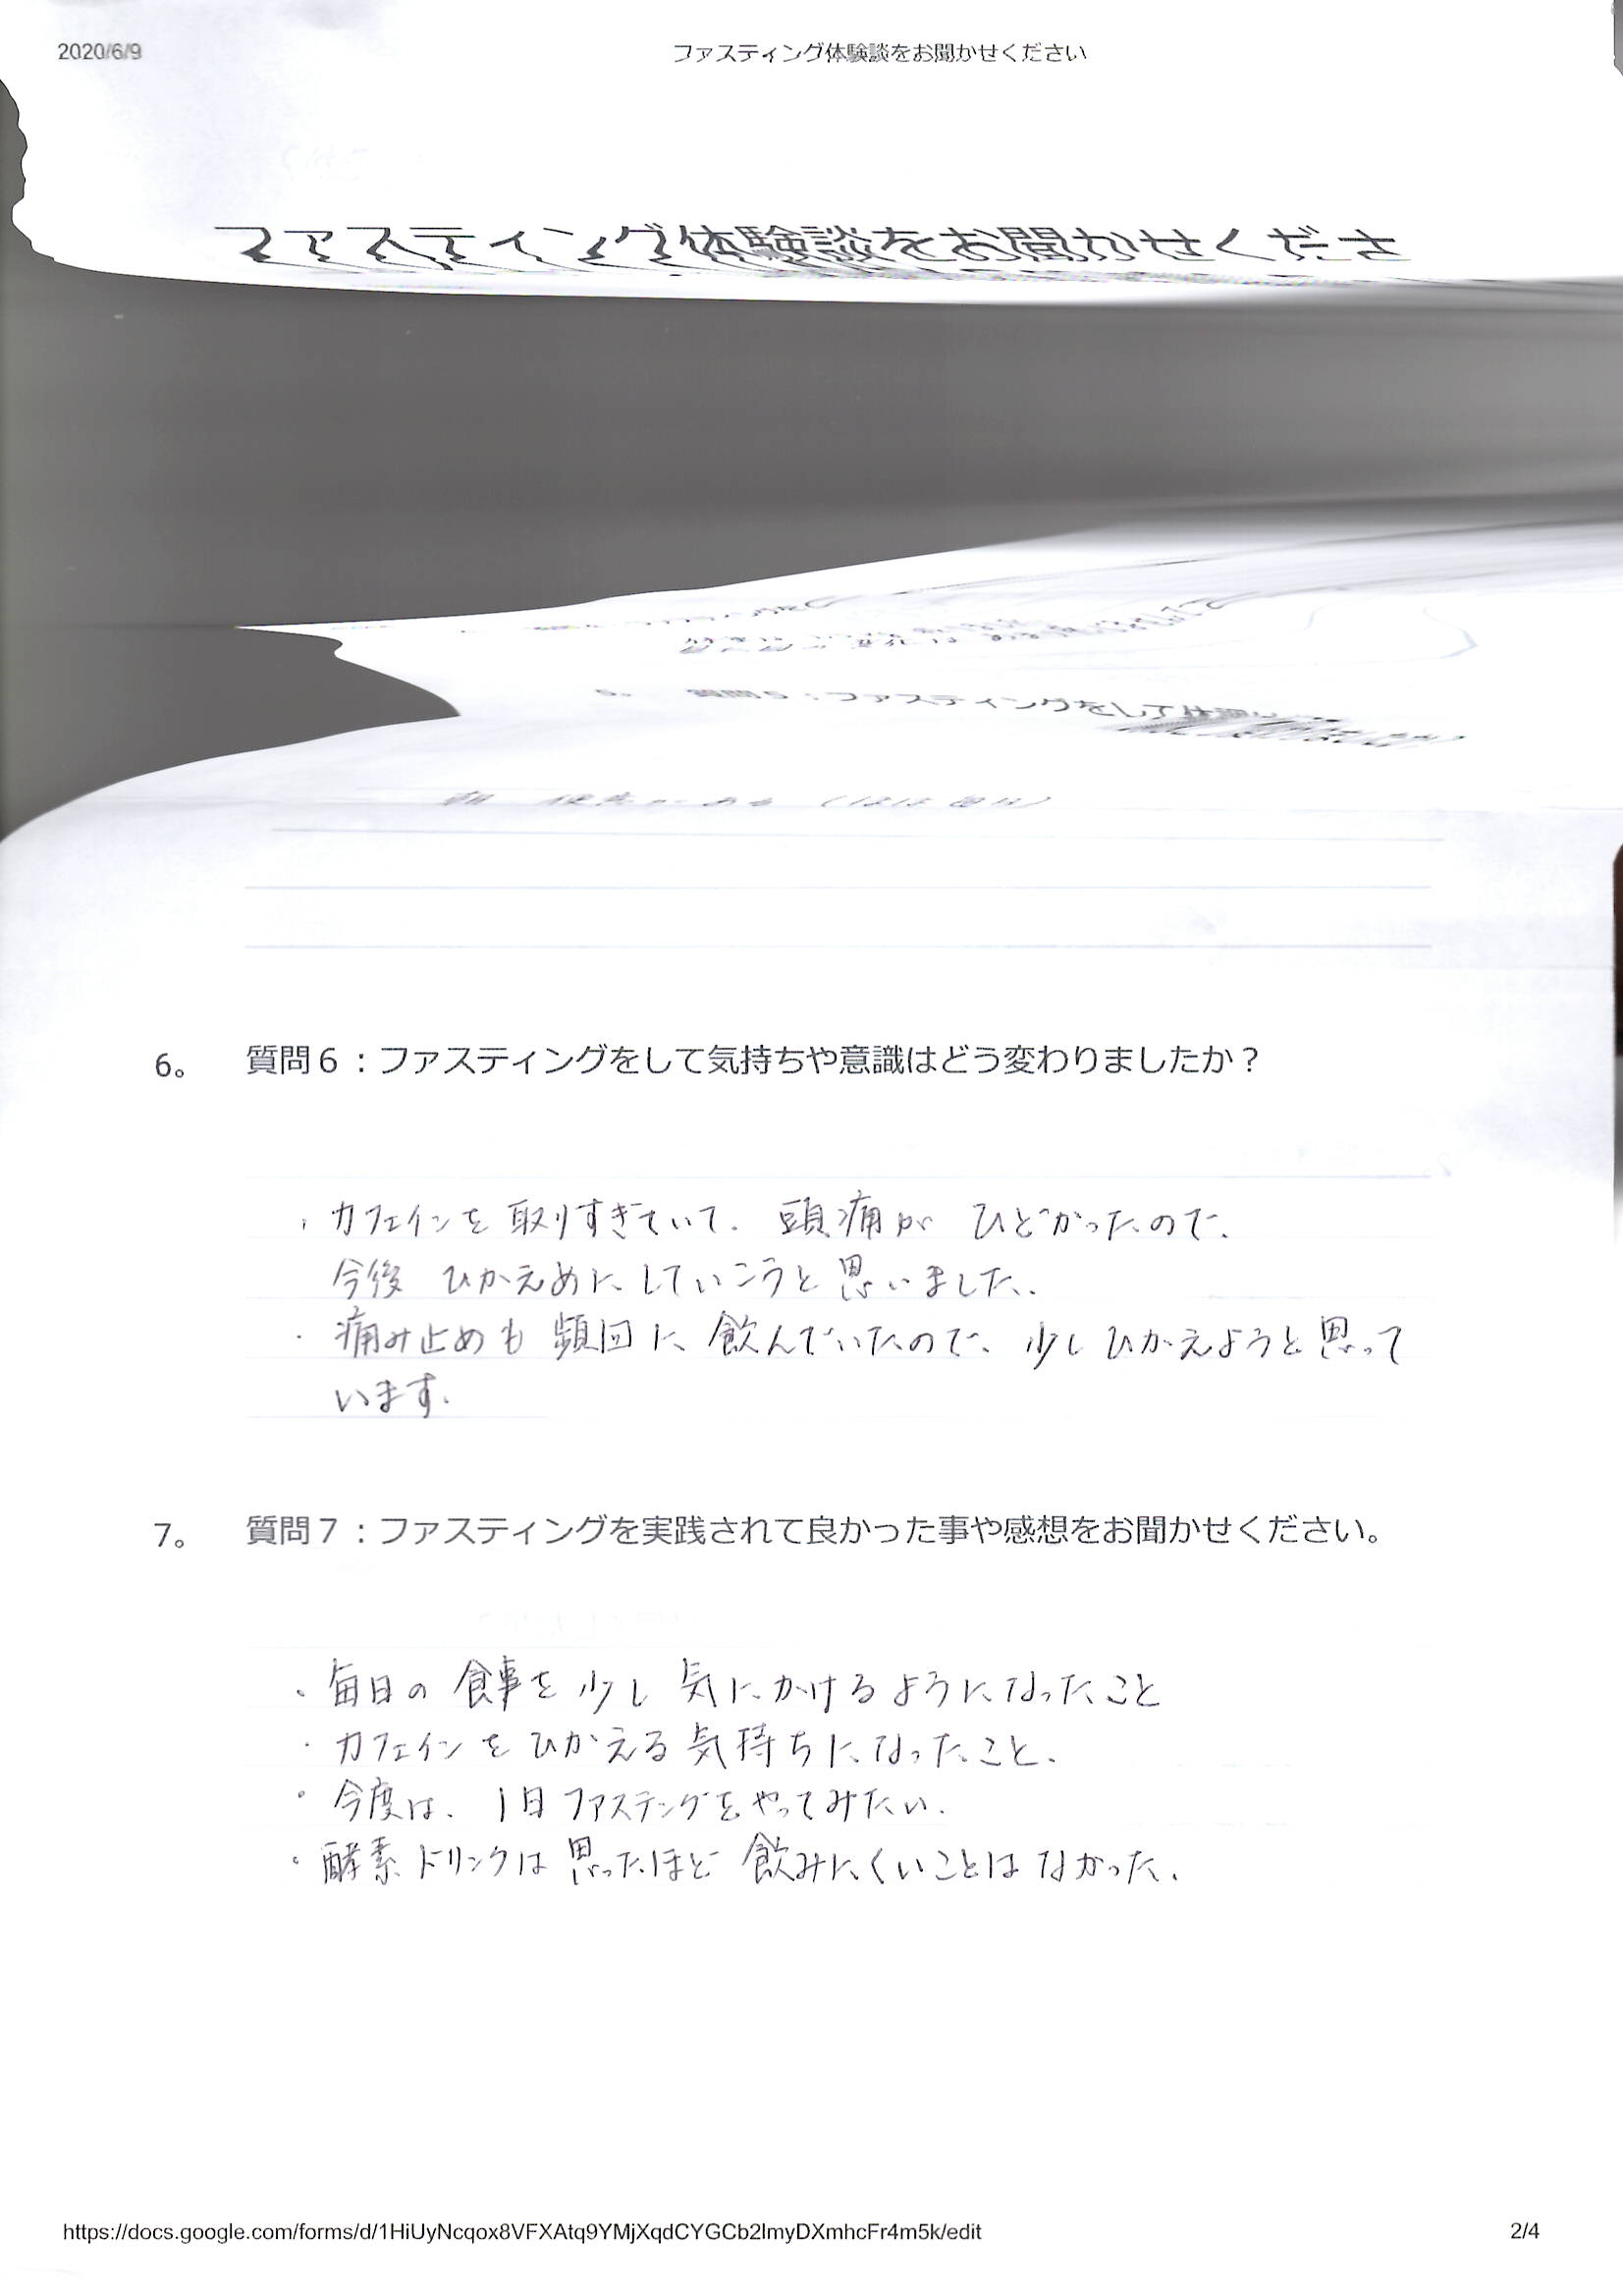 2020/6/9
ファスティング体験談をお聞かせください
ファスティング体験談をお聞かせくださ
質問5:ファスティングをして
朝 がある(ほぼ毎日)
6。 質問6:ファスティングをして気持ちや意識はどう変わりましたか?
・カフェインを取りすぎていて、頭痛が ひどかったので、
今後 ひかえめにしていこうと思いました。
・痛み止めも頻回に飲んでいたので、少しひかえようと思って
います。
7。 質問7:ファスティングを実践されて良かった事や感想をお聞かせください。
・毎日の食事を少し気にかけるようになったこと
・カフェインをひかえる気持ちになったこと、
・今度は、1日ファステングをやってみたい。
・酵素ドリンクは思ったほど飲みにくいことはなかった、
https://docs.google.com/forms/d/1HiUyNcqox8VFXAtq9YMjXqdCYGCb2lmyDXmhcFr4m5k/edit
2/4